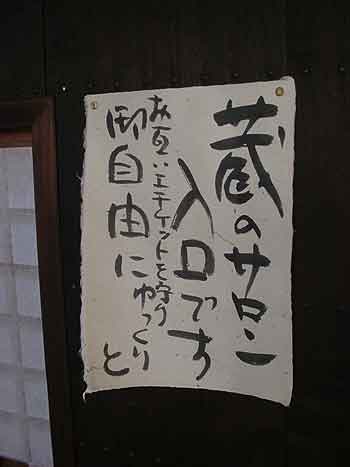 蔵のサロン
入口です
お互いエチケットを守り
御自由に
ゆっくりと